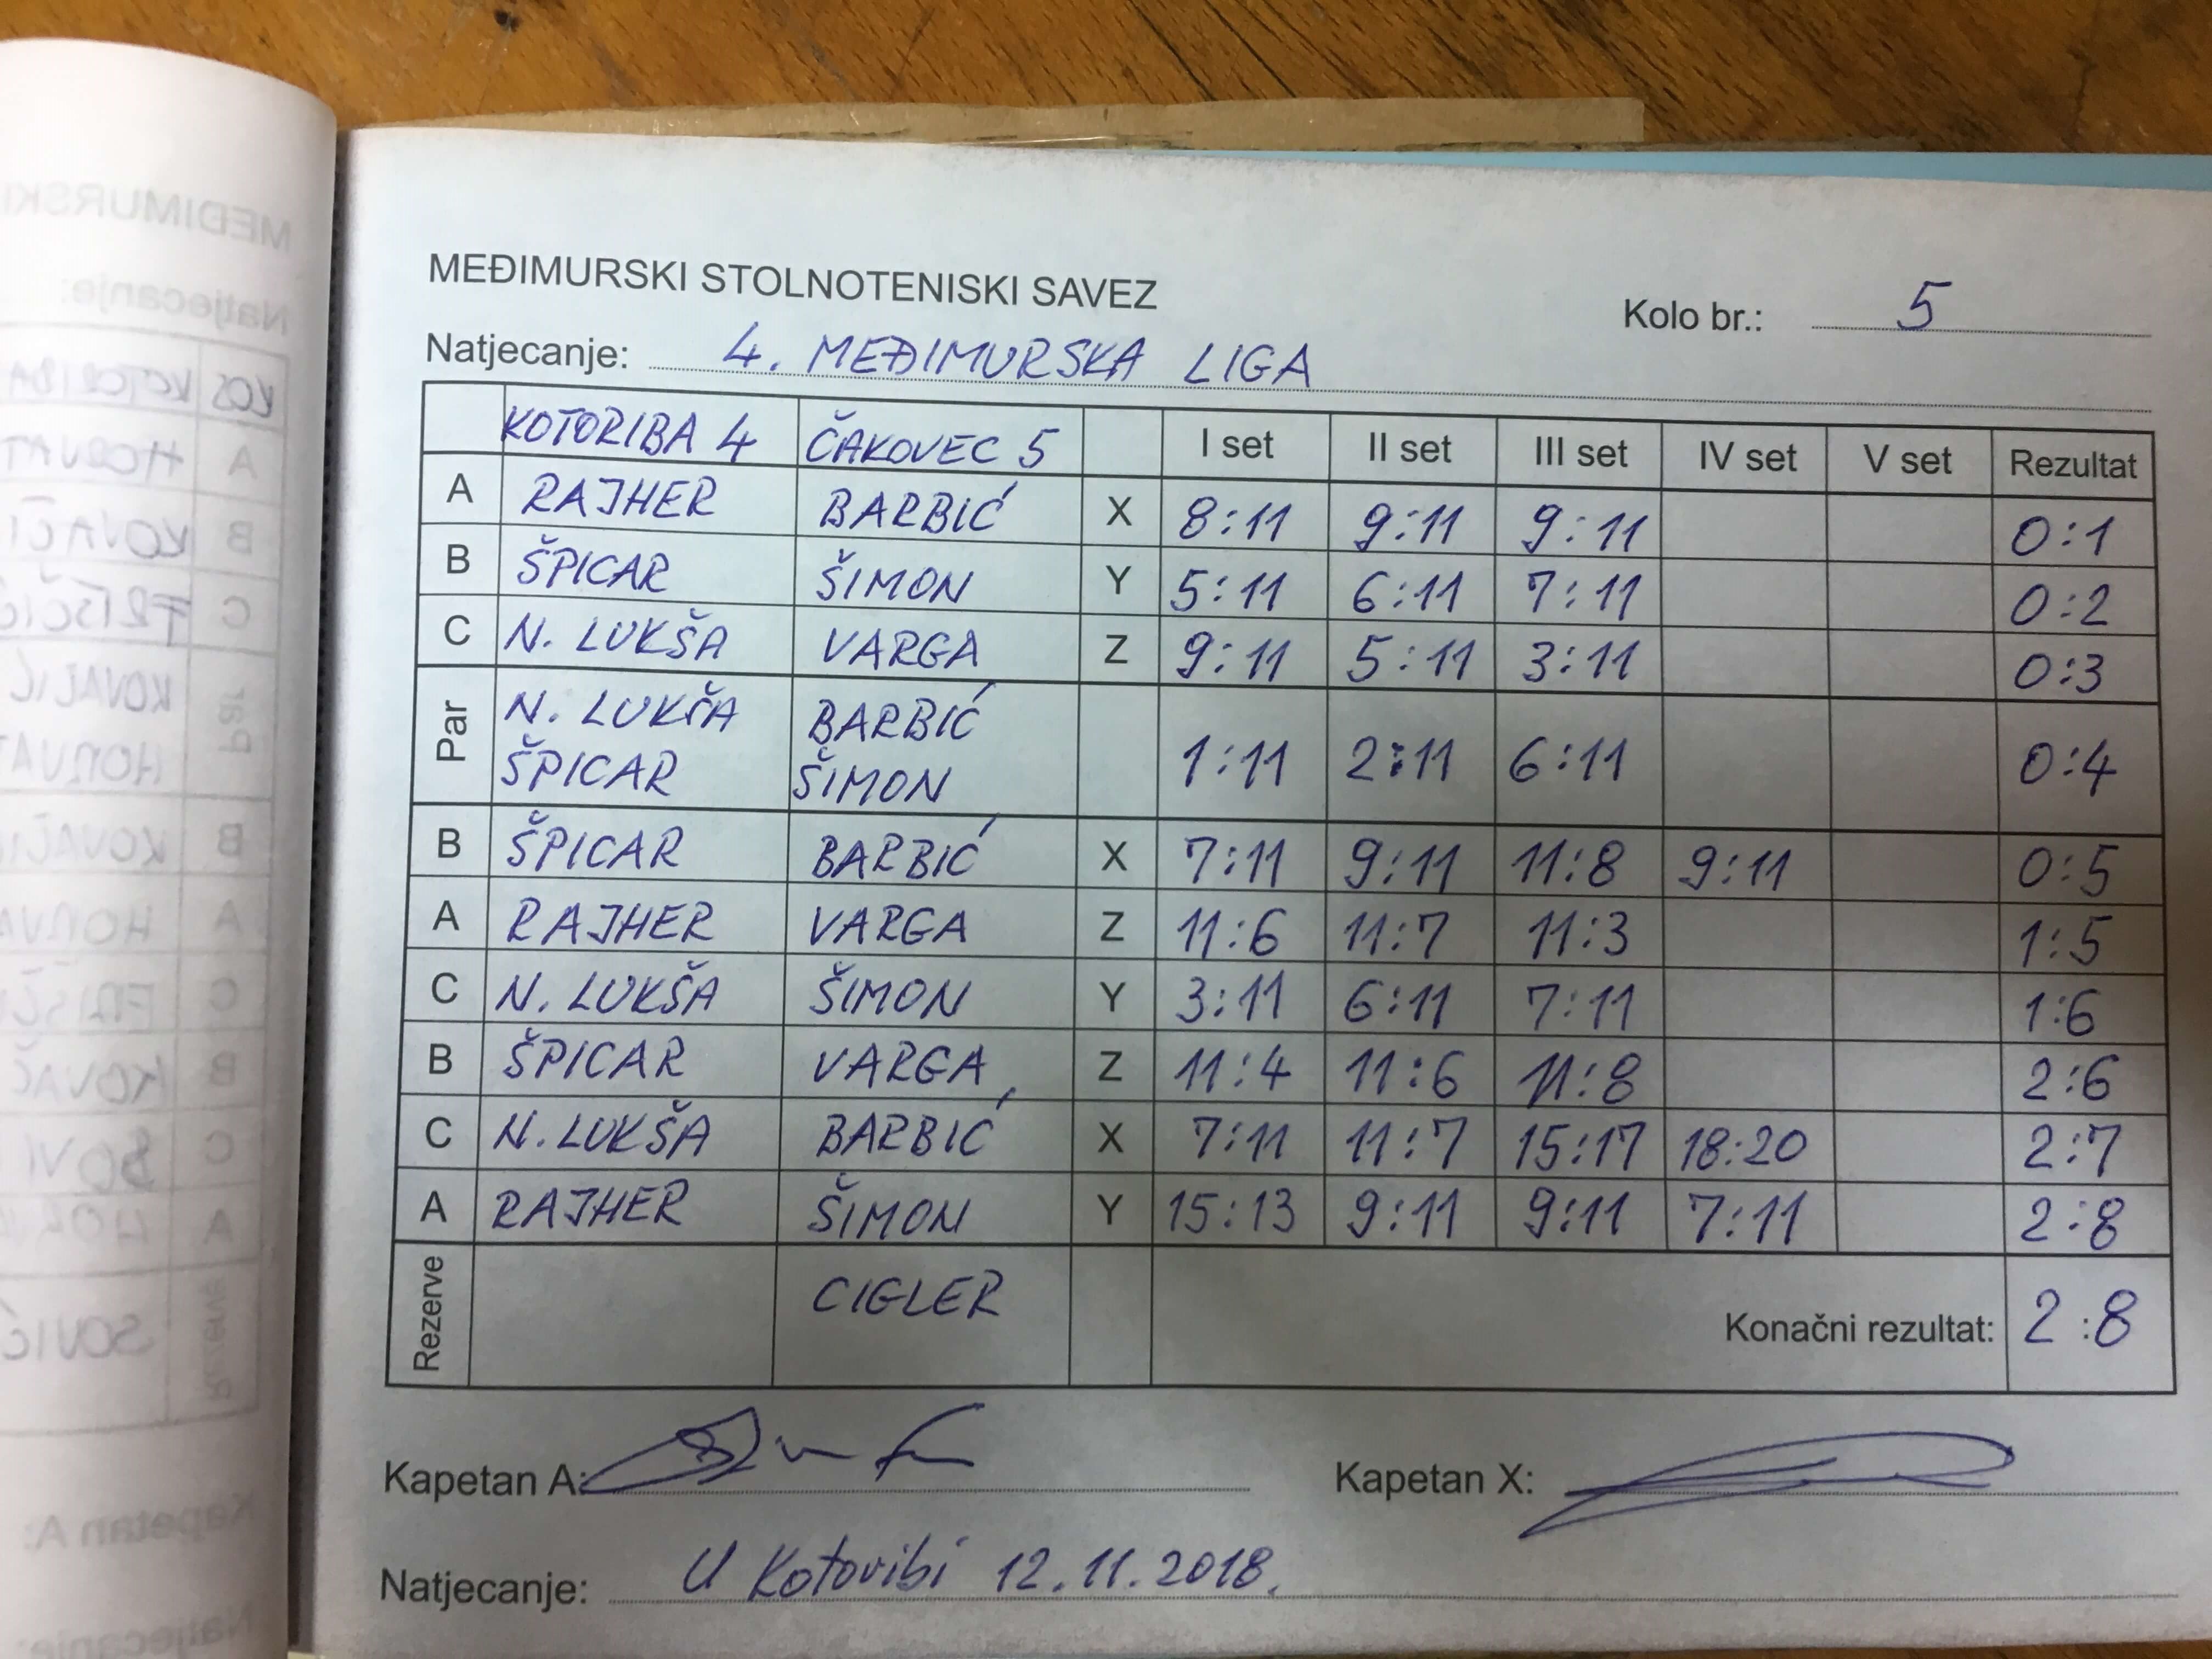 MEĐIMURSKI STOLNOTENISKI SAVEZ
Kolo br.: 5
Natjecanje: 4. MEĐIMURSKA LIGA
KOTORIBA 4 ČAKOVEC 5 I set II set III set IV set V set Rezultat
A RAJHER BARBIĆ X 8:11 9:11 9:11 0:1
B ŠPICAR ŠIMON Y 5:11 6:11 7:11 0:2
C N. LUKŠA VARGA Z 9:11 5:11 3:11 0:3
Par N. LUKŠA BARBIĆ
ŠPICAR ŠIMON 1:11 2:11 6:11 0:4
B ŠPICAR BARBIĆ X 7:11 9:11 11:8 9:11 0:5
A RAJHER VARGA Z 11:6 11:7 11:3 1:5
C N. LUKŠA ŠIMON Y 3:11 6:11 7:11 1:6
B ŠPICAR VARGA Z 11:4 11:6 11:8 2:6
C N. LUKŠA BARBIĆ X 7:11 11:7 15:17 18:20 2:7
A RAJHER ŠIMON Y 15:13 9:11 9:11 7:11 2:8
Rezerve CIGLER Konačni rezultat: 2:8
Kapetan A: Kapetan X:
Natjecanje: U Kotoribi 12.11.2018.